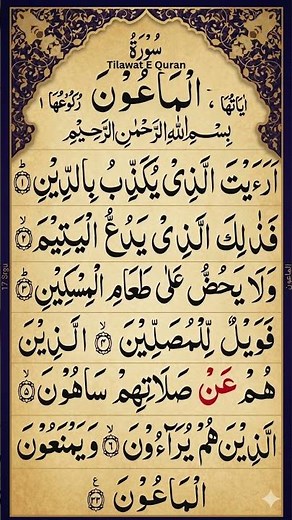 سُوْرَةُ
Tilawat E Quran
اٰيَاتُهَا ٧ الْمَاعُوْنَ رُكُوْعُهَا ١
بِسْمِ اللهِ الرَّحْمٰنِ الرَّحِيْمِ
اَرَءَيْتَ الَّذِىْ يُكَذِّبُ بِالدِّيْنِ ۝١
فَذٰلِكَ الَّذِىْ يَدُعُّ الْيَتِيْمَ ۝٢
وَلَا يَحُضُّ عَلٰى طَعَامِ الْمِسْكِيْنِ ۝٣
فَوَيْلٌ لِّلْمُصَلِّيْنَ ۝٤ الَّذِيْنَ
هُمْ عَنْ صَلَاتِهِمْ سَاهُوْنَ ۝٥
الَّذِيْنَ هُمْ يُرَآءُوْنَ ۝٦ وَيَمْنَعُوْنَ
الْمَاعُوْنَ